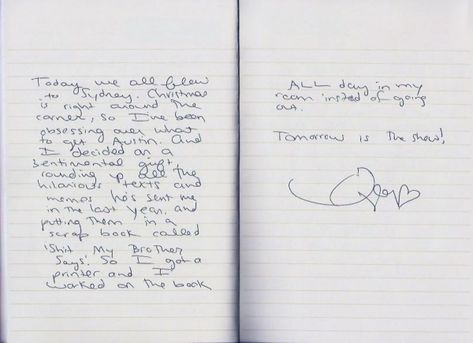 Today we all flew
to Sydney. Christmas
is right around the
corner, so I've been
obsessing over what
to get Austin. And
I decided on a
sentimental gift,
rounding up all the
hilarious texts and
memos he's sent me
in the last year, and
putting them in a
scrap book called
'Shit My Brother
Says'. So I got a
printer and I
worked on the book
ALL day in my
room instead of going
out.
Tomorrow is the show!